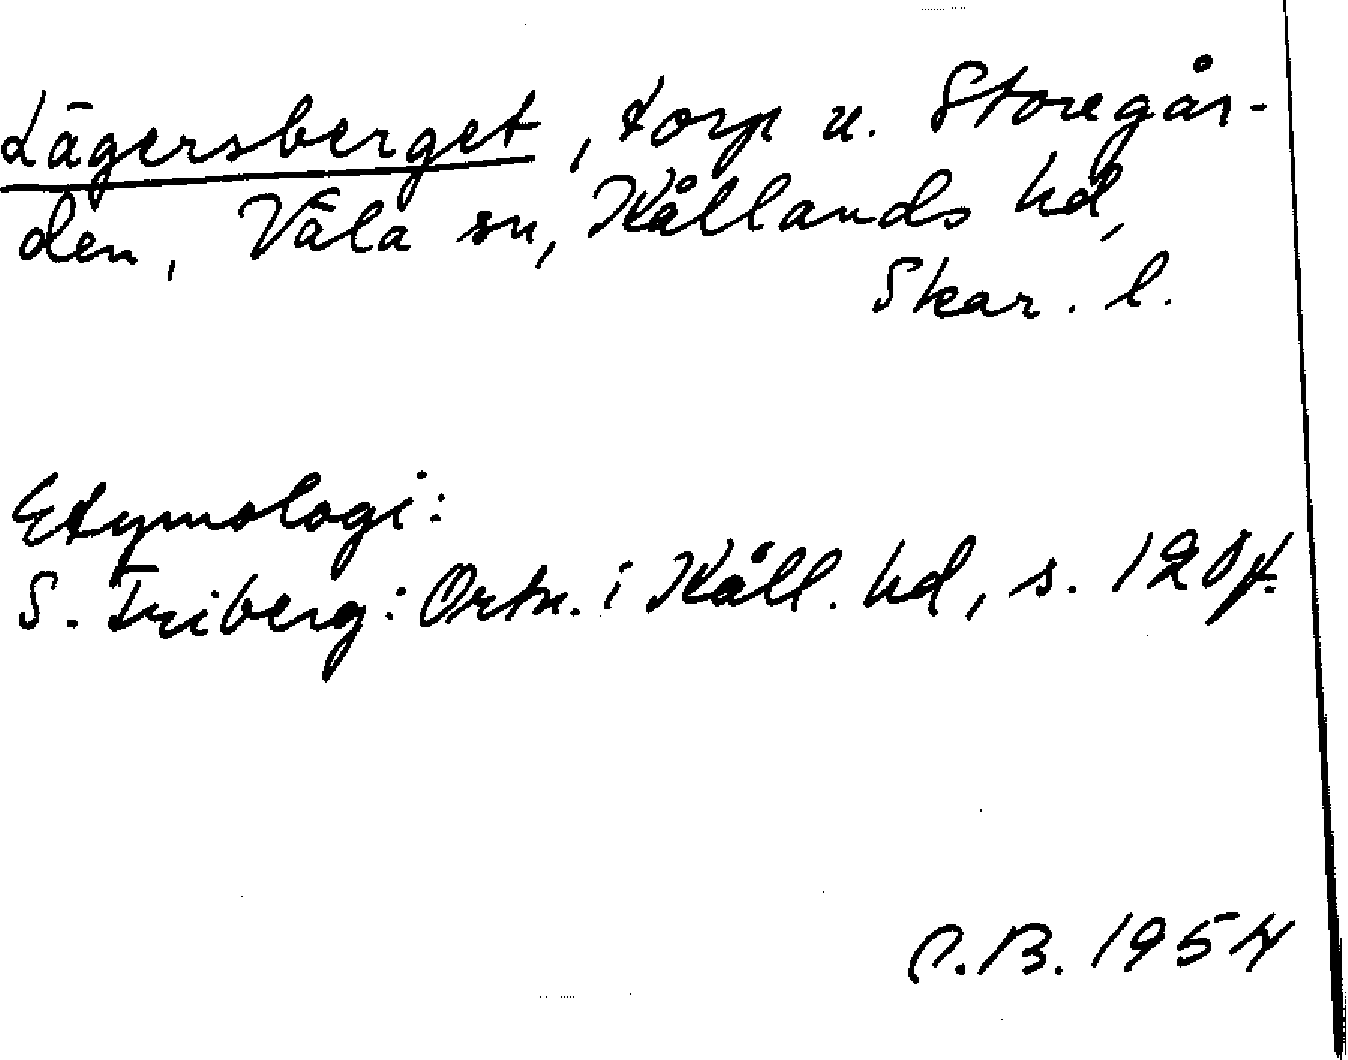 Lägersberget, torp u. Storegår-
den, Väla sn, Kållands hd,
Skar. l.
Etymologi:
S. Friberg: Ortn. i Kåll. hd, s. 120 f.
C.B. 1954